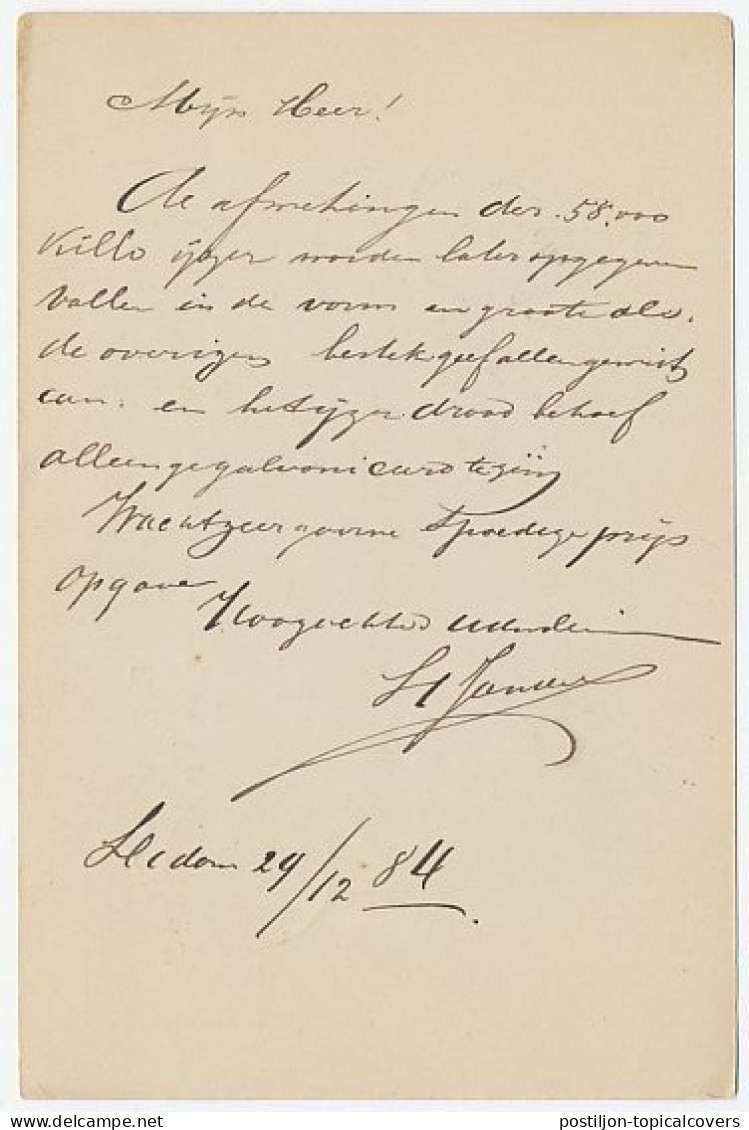 Mijn Heer!
De afmetingen der 58.000
Killo ijzer worden later opgegeven
vallen in de vorm en groote als
de overigen bestek geef alleen gewicht
aan. en het ijzer draad behoef
alleen gegalvoniceerd te zijn
Wacht zeer gaarne spoedige prijs
opgave
Hoogachtend
H Jansen
29/12 84
postiljon-topicalcovers